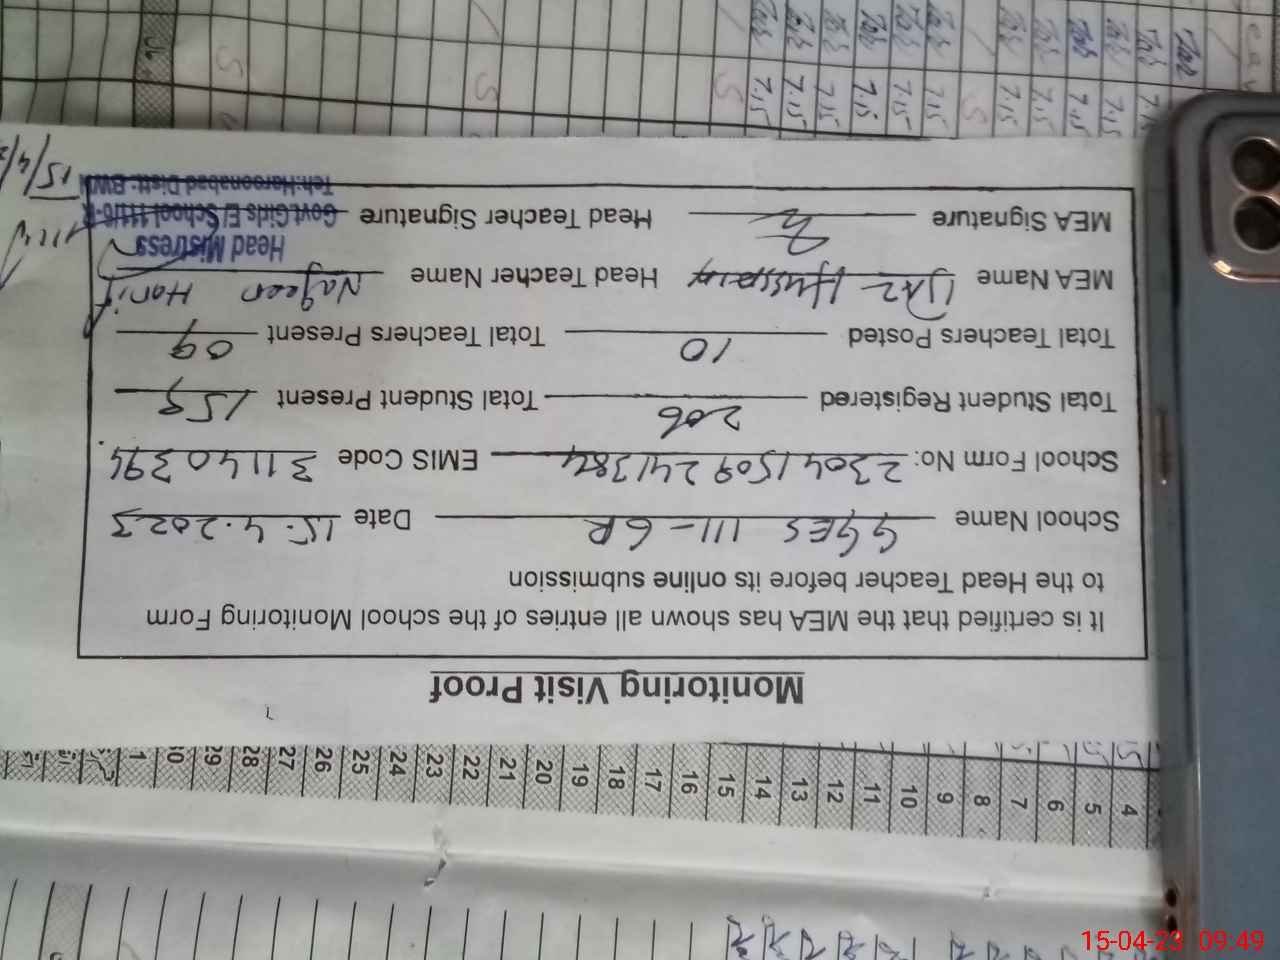 Monitoring Visit Proof
It is certified that the MEA has shown all entries of the school Monitoring Form
to the Head Teacher before its online submission
School Name GGES 111-6R Date 15.4.2023
School Form No: 23041509241384 EMIS Code 31140394
Total Student Registered 206 Total Student Present 159
Total Teachers Posted 10 Total Teachers Present 09
MEA Name Hussain Head Teacher Name Hanif
MEA Signature Head Teacher Signature
Head Mistress
Govt.Girls E/School 111/6-R
Teh:Haroonabad Distt: BWN
15/4/2
4 5 6 7 8 9 10 11 12 13 14 15 16 17 18 19 20 21 22 23 24 25 26 27 28 29 30 1
7.15 7.15 7.15 7.15 7.15 7.15 7.15 7.15 7.15 7.15 7.15
15-04-23 09:49